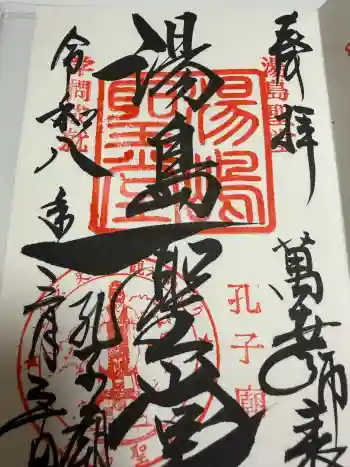 奉拝
湯島聖堂
萬世師表
孔子廟
湯島聖堂
湯島聖堂
孔子廟
令和八年
三月五日
学問成就